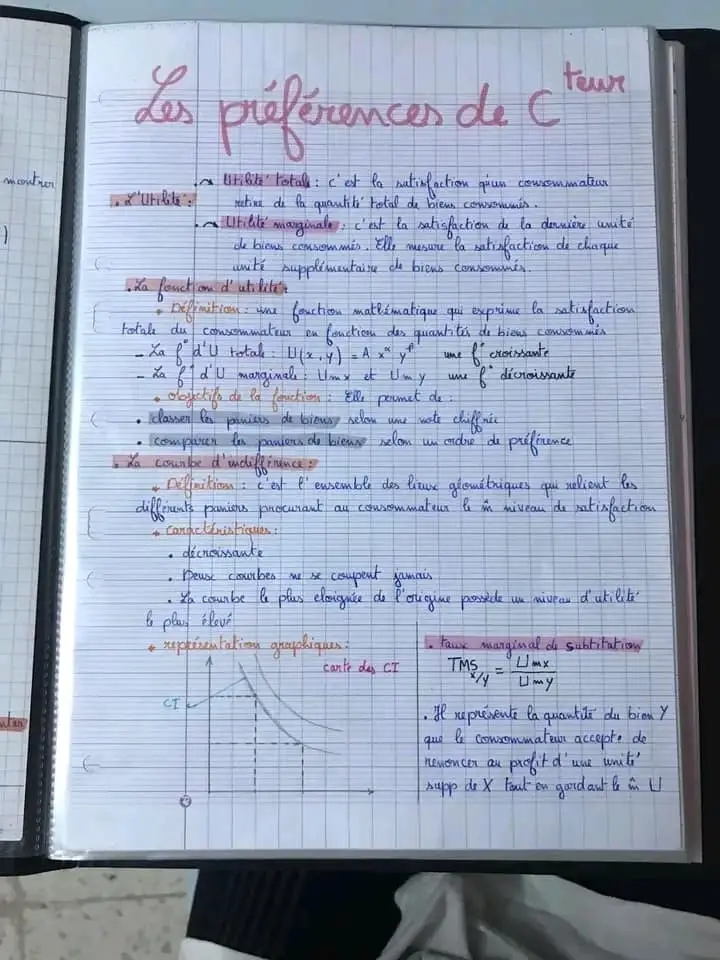 Les préférences de C teur
montrer
)
Utilité totale : c'est la satisfaction qu'un consommateur
. L'Utilité : retire de la quantité total de biens consommés.
Utilité marginale : c'est la satisfaction de la dernière unité
de biens consommés. Elle mesure la satisfaction de chaque
unité supplémentaire de biens consommés.
. La fonction d'utilité :
• Définition : une fonction mathématique qui exprime la satisfaction
totale du consommateur en fonction des quantités de biens consommés
- La f° d'U totale : U(x, y) = A x^α y^β une f° croissante
- La f° d'U marginale : Umx et Umy une f° décroissante
• objectifs de la fonction : Elle permet de :
• classer les paniers de biens selon une note chiffrée
• comparer les paniers de biens selon un ordre de préférence
. La courbe d'indifférence :
• Définition : c'est l'ensemble des lieux géométriques qui relient les
différents paniers procurant au consommateur le m̂ niveau de satisfaction
• caractéristiques :
• décroissante
• Deux courbes ne se coupent jamais
• La courbe le plus éloignée de l'origine possède un niveau d'utilité
le plus élevé
• représentation graphiques :
carte des CI
CI
. taux marginal de substitution
TMS x/y = Umx / Umy
. Il représente la quantité du bien Y
que le consommateur accepte de
renoncer au profit d'une unité
supp de X tout en gardant le m̂ U